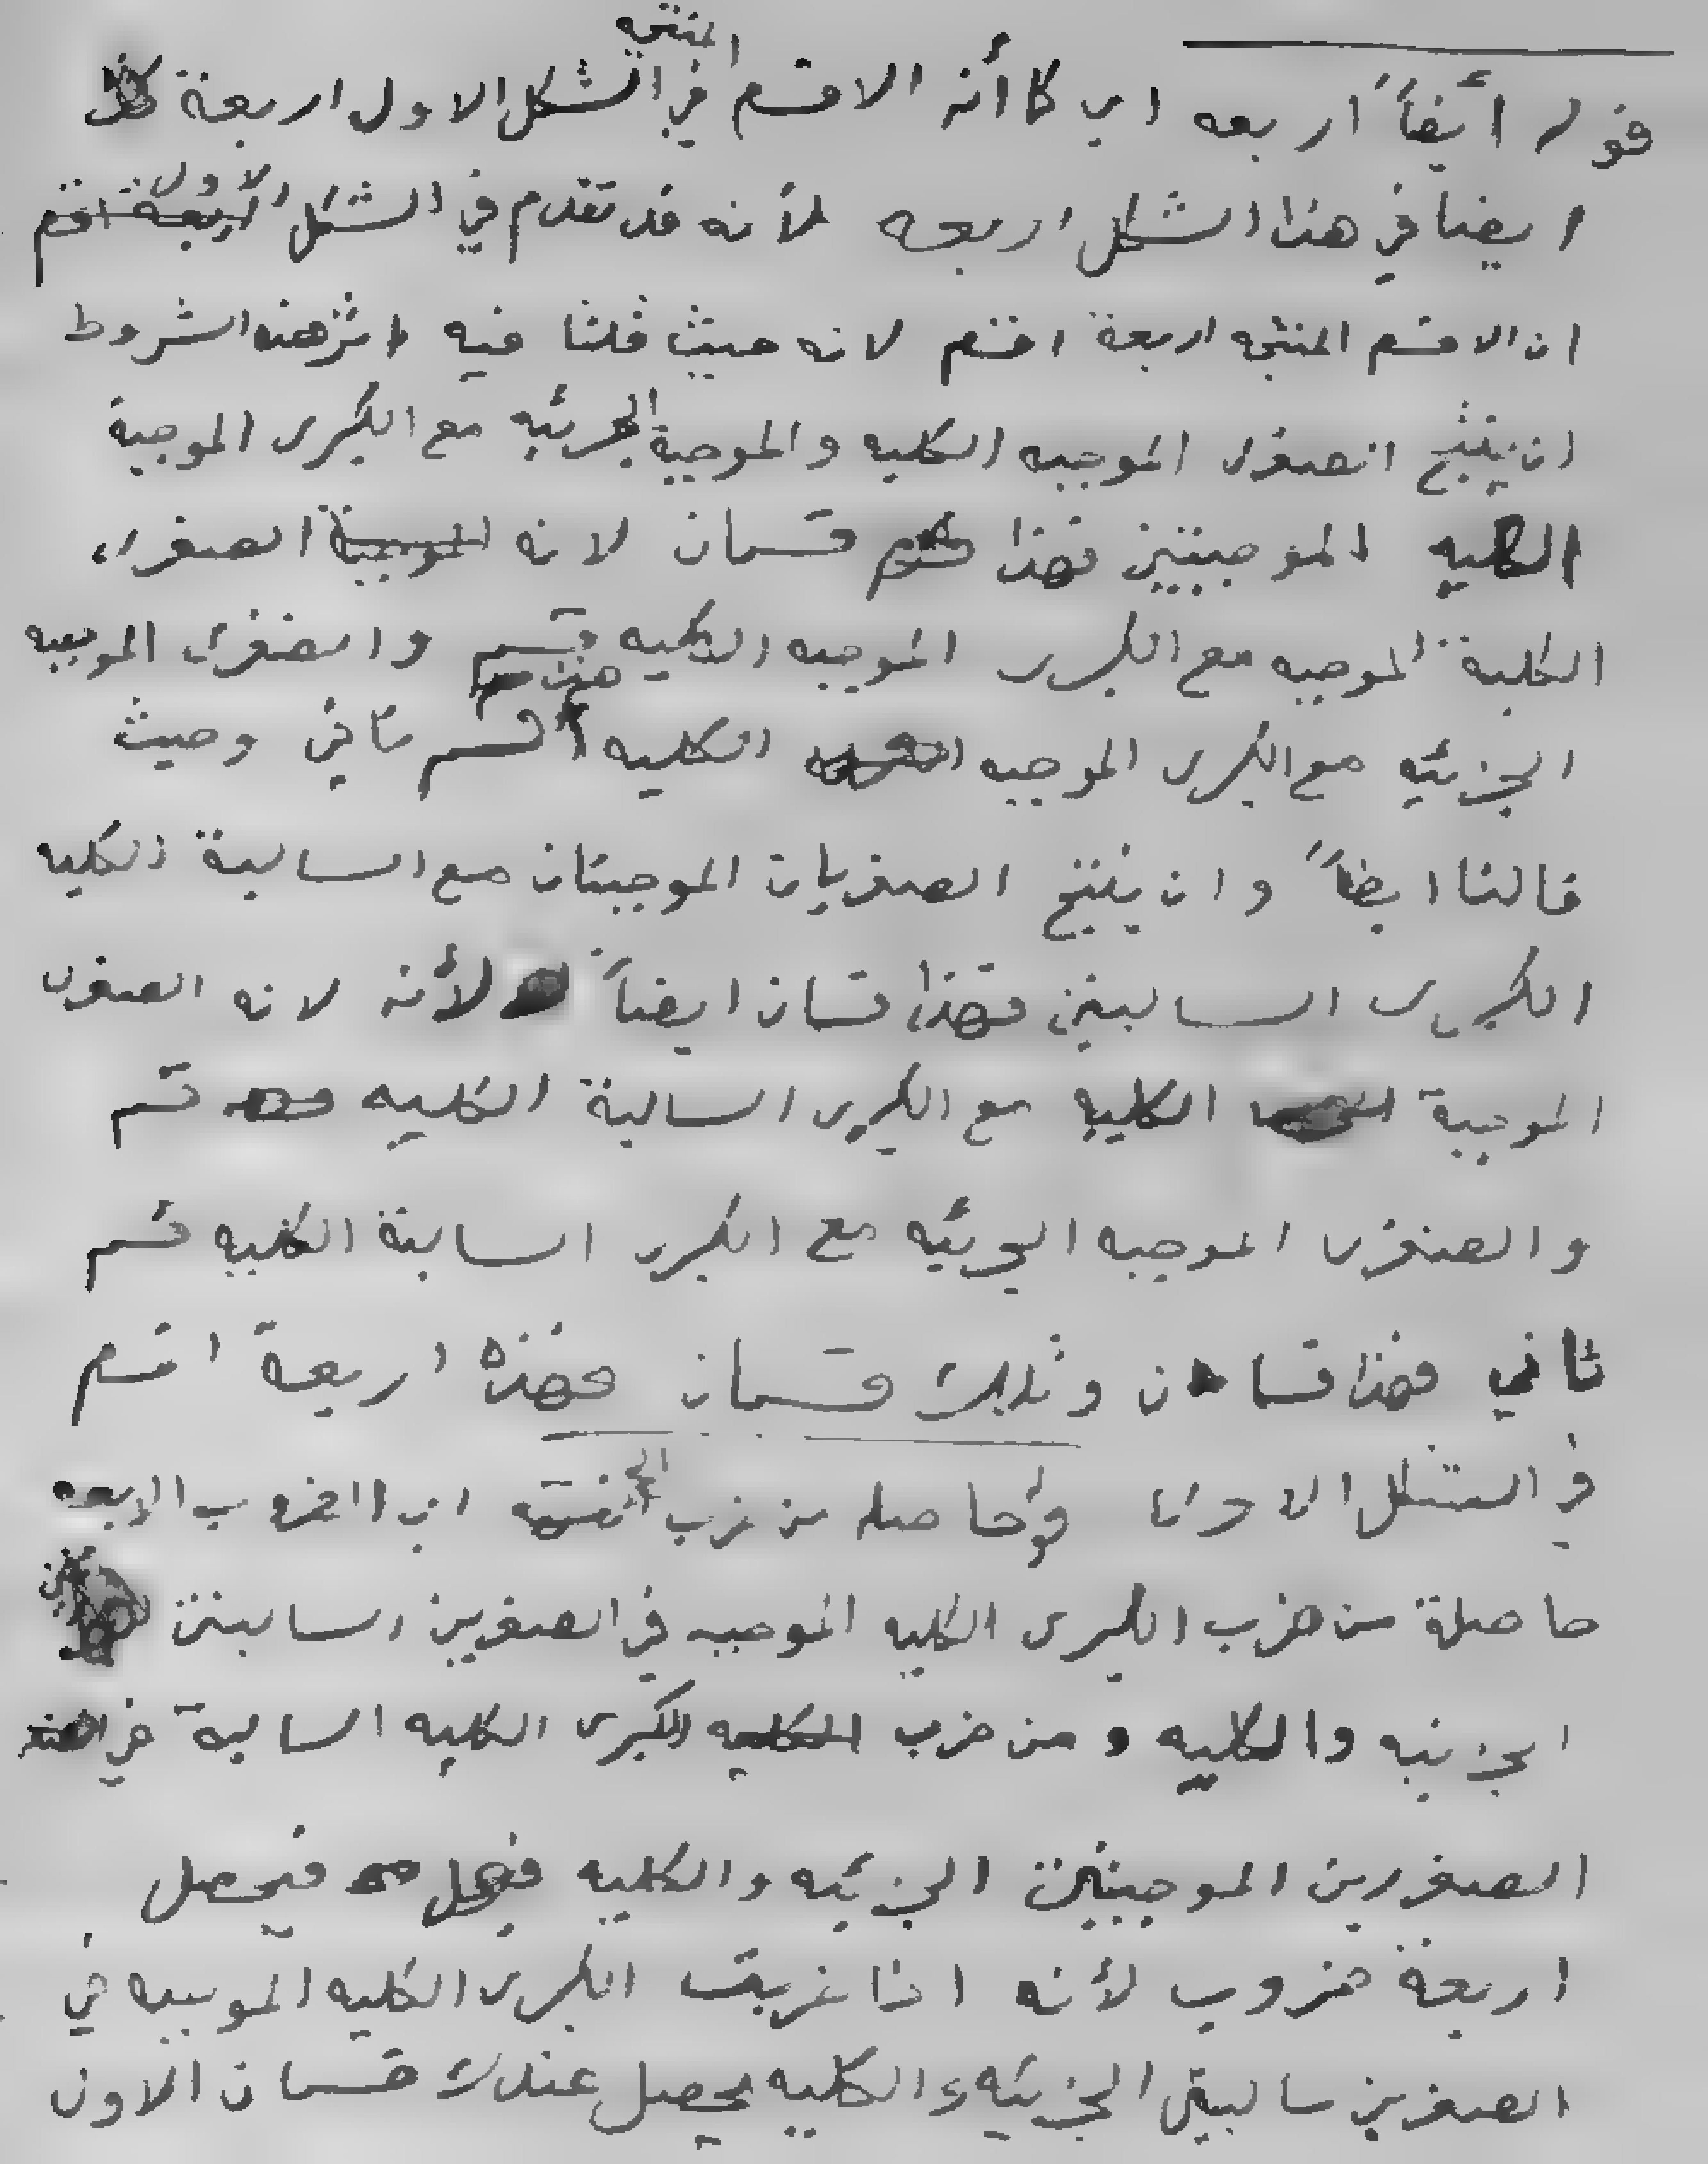 قوله أيضاً اربعه اي كما أنه الاقسام المنتجه في الشكل الاول اربعة
ايضا في هذا الشكل اربعه لأنه قد تقدم في الشكل الاول
ان الاقسام المنتجه اربعة اقسام لانه حيث قلنا فيه اثر هذه الشروط
ان ينتج الصغرى الموجبه الكليه والموجبة الجزئيه مع الكبرى الموجبة
الكليه الموجبتين فهذا قسمان لانه الصغرى
الكلية الموجبه مع الكبرى الموجبه الكليه قسم والصغرى الموجبه
الجزئيه مع الكبرى الموجبه الكليه هذا قسم ثاني وحيث
قالنا ايضاً وان ينتج الصغريان الموجبتان مع السالبة الكليه
الكبرى السالبتين فهذا قسمان ايضاً لأنه لانه الصغرى
الموجبة الكليه مع الكبرى السالبة الكليه قسم
والصغرى الموجبه الجزئيه مع الكبرى السالبة الكليه قسم
ثاني فهذا قسمان وذلك قسمان فهذه اربعة اقسام
في الشكل الاول قوله حاصله من ضرب الخ اي الضروب الاربعه
حاصلة من ضرب الكبرى الكليه الموجبه في الصغريين السالبتين
الجزئيه والكليه ومن ضرب الكبرى الكليه السالبة في
الصغريين الموجبتين الجزئيه والكليه فيحصل
اربعة ضروب لأنه اذا ضربت الكبرى الكليه الموجبه في
الصغريين سالبتي الجزئيه والكليه يحصل عندك قسمان الاول